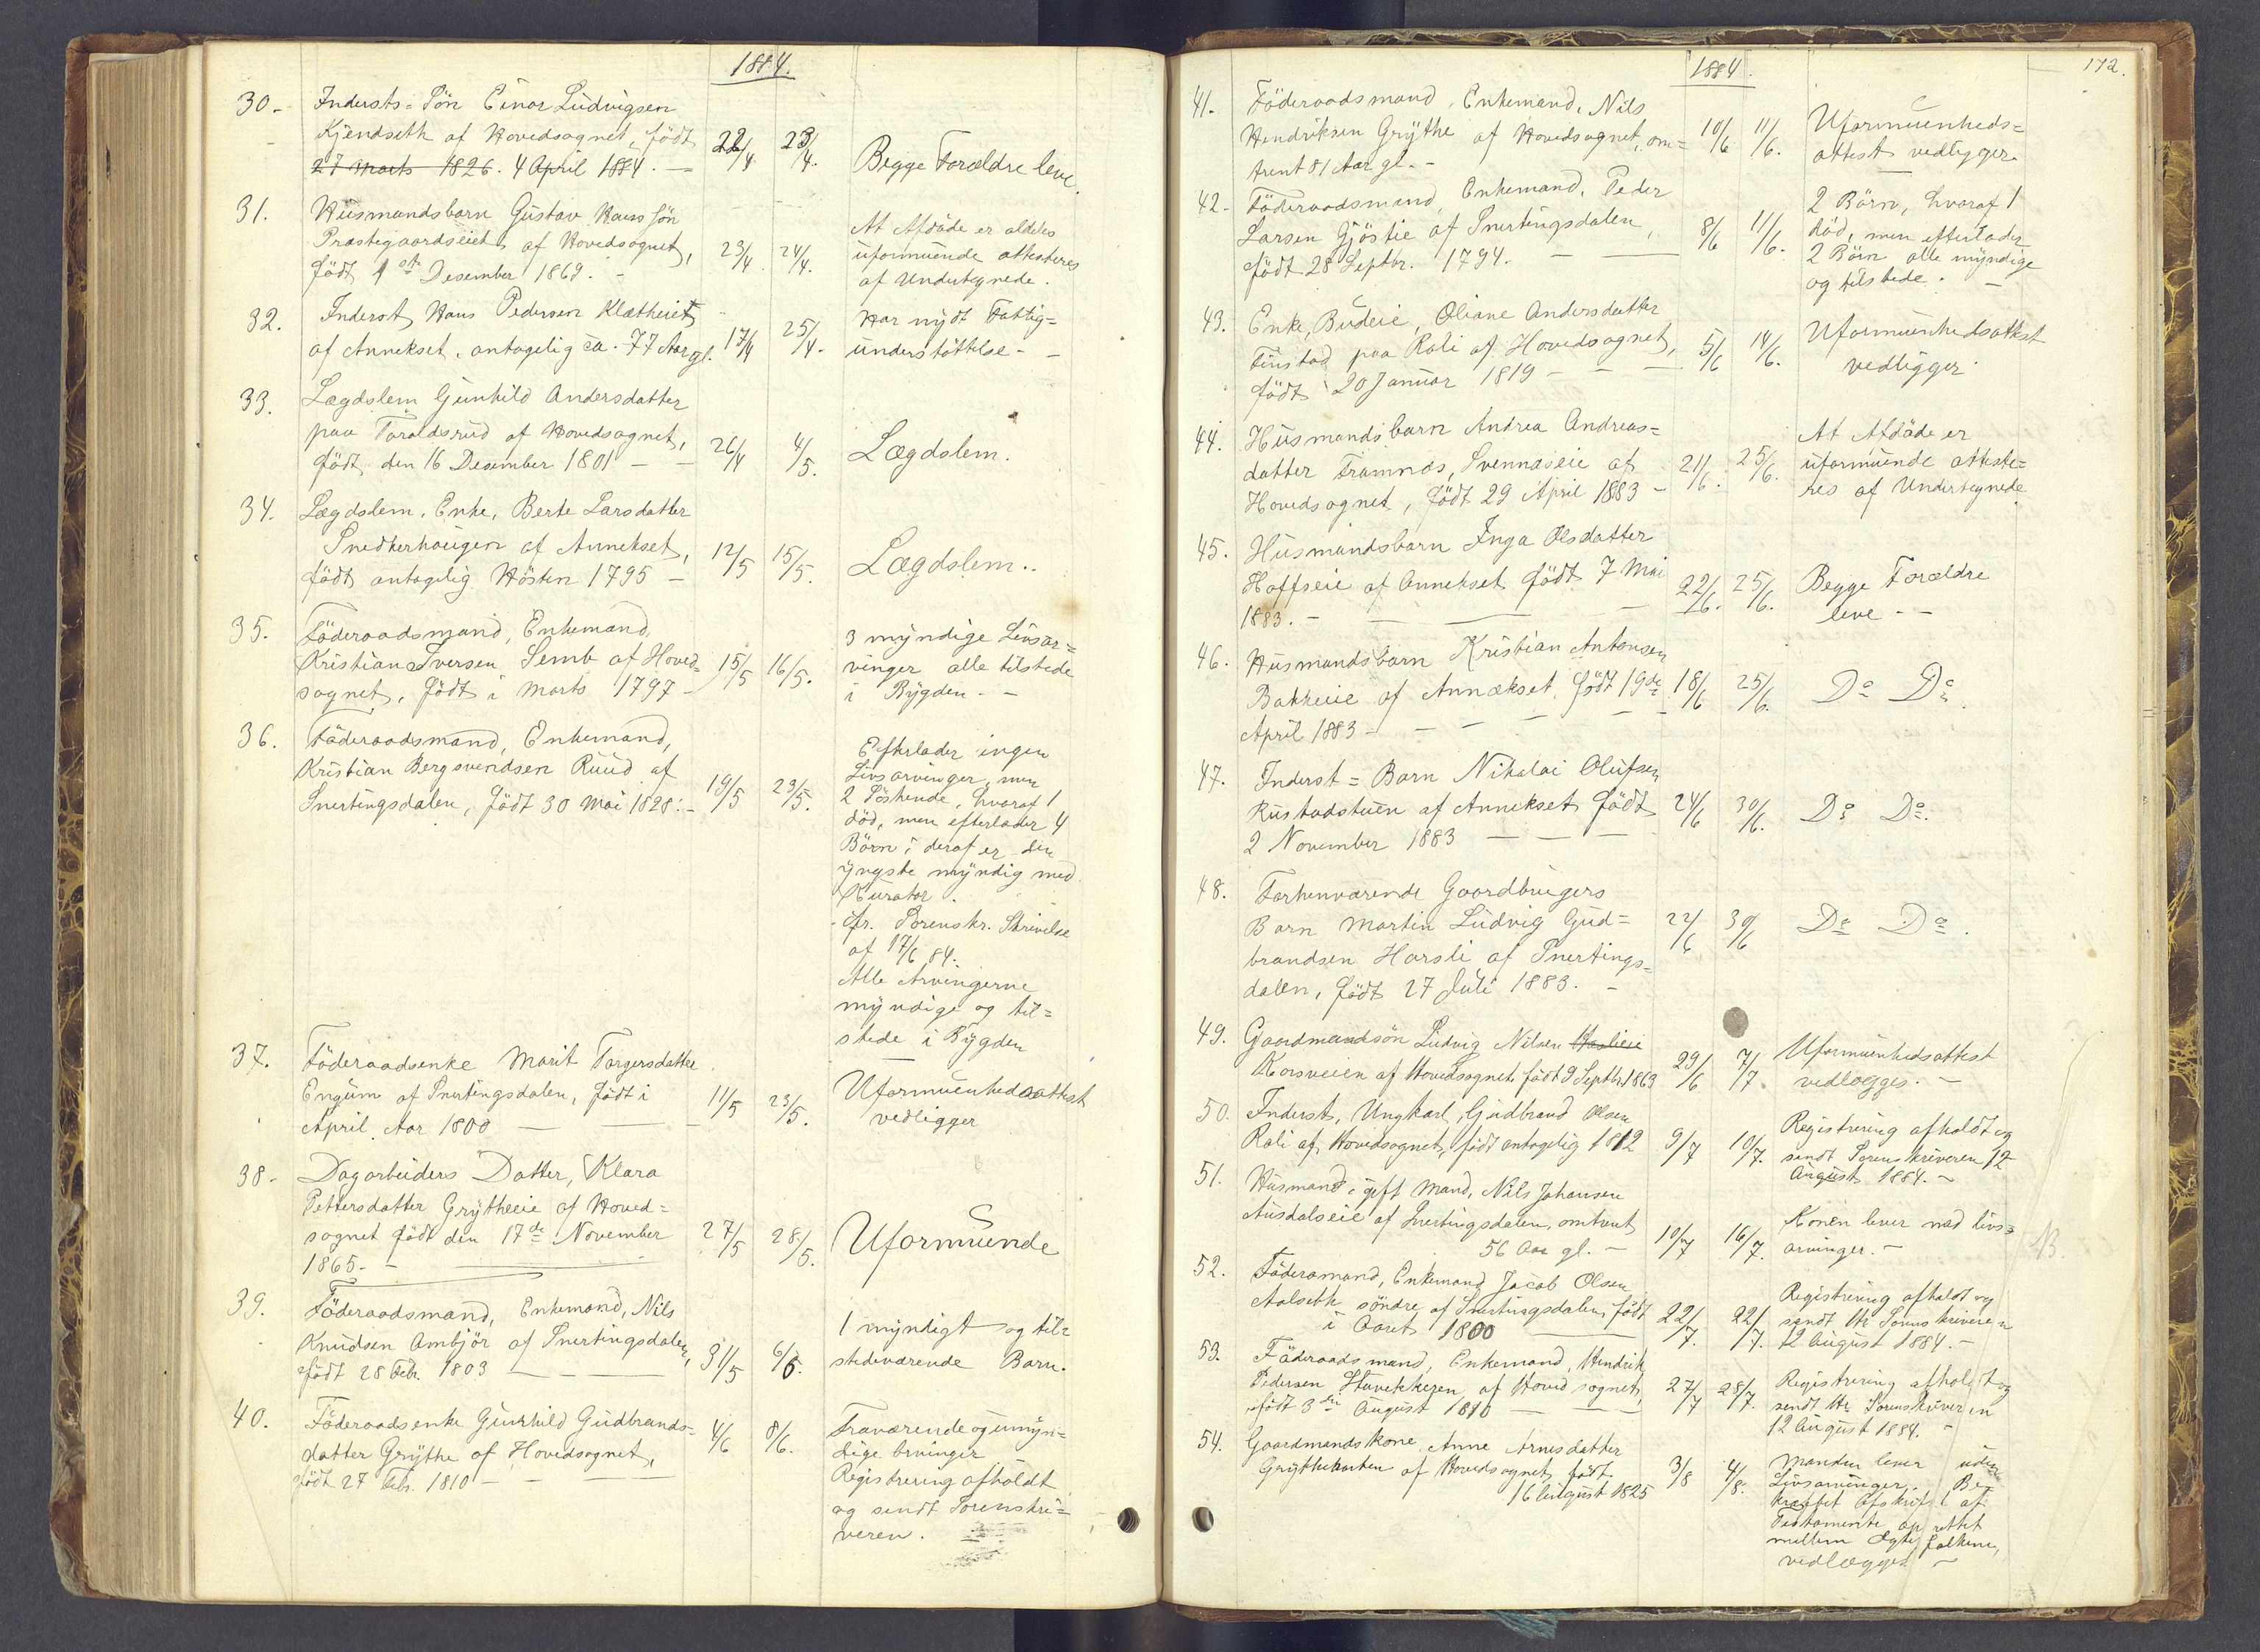 1884.
30. Indersts-Sön Einar Ludvigsen
Kjendseth af Hovedsognet, födt
27 Marts 1826. 4 April 1884. —
22/4 23/4.
Begge Forældre leve.
31. Husmandsbarn Gustav Hanssön
Præstegaardseiet af Hovedsognet,
födt 1ste Desember 1869. -
23/4. 24/4.
At Afdöde er aldeles
uformuende attesteres
af Undertegnede.
32. Inderst, Hans Pedersen Klætheiet
af Annekset, antagelig ca. 77 Aar gl.
17/4 25/4.
Har nydt Fattig=
understöttelse - -
33. Lægdslem Gunhild Andersdatter
paa Taraldsrud af Hovedsognet,
födt den 16 Desember 1801 — —
26/4 4/5.
Lægdslem.
34. Lægdslem, Enke, Berte Larsdatter
Snedkerhaugen af Annekset,
födt antagelig Hösten 1795 —
12/5 15/5.
Lægdslem..
35. Föderaadsmand, Enkemand,
Kristian Iversen Semb af Hoved=
sognet, födt i Marts 1797 -
15/5 16/5.
3 myndige Livsar=
vinger alle tilstede
i Bygden. -
36. Föderaadsmand, Enkemand,
Kristian Bergsvendsen Ruud af
Snertingsdalen, födt 30 Mai 1828. -
19/5 23/5.
Efterlader ingen
Livsarvinger, men
2 Söskende, hvoraf 1
död, men efterlader 4
Börn; deraf er den
yngste myndig med
Kurator.
cfr. Sorenskr. Skrivelse
af 17/6 84.
Alle Arvingerne
myndige og til=
stede i Bygden
37. Föderaadsenke Marit Torgersdatter
Engum af Snertingsdalen, födt i
April Aar 1800 —
11/5 23/5.
Uformuenhedsattest
vedligger
38. Dagarbeiders Datter, Klara
Pettersdatter Grytheeie af Hoved=
sognet födt den 17de November
1865. -
27/5 28/5.
Uformuende
39. Föderaadsmand, Enkemand, Nils
Knudsen Ambjör af Snertingsdalen,
födt 28 Febr. 1803 —
31/5 6/6.
1 myndigt og til=
stedeværende Barn.
40. Föderaadsenke Gunhild Gudbrands=
datter Grythe af Hovedsognet,
födt 27 Febr. 1810 —
4/6 8/6.
Fraværende og umyn=
dige Arvinger
Registrering afholdt
og sendt Sorenskri=
veren.
1884.
172.
41. Föderaadsmand, Enkemand, Nils
Hendriksen Grythe af Hovedsognet, om=
trent 81 Aar gl. -
10/6 11/6.
Uformuenheds=
attest vedligger.
42. Föderaadsmand, Enkemand, Peder
Larsen Gjöstie af Snertingsdalen,
födt 28 Septbr. 1794. —
8/6 11/6.
2 Börn, hvoraf 1
död, men efterlader
2 Börn alle myndige
og tilstede. -
43. Enke, Budeie, Oliane Andersdatter
paa Rali af Hovedsognet,
födt 20 Januar 1819 — —
5/6 14/6.
Uformuenhedsattest
vedligger.
44. Husmandsbarn Andrea Andreas=
datter Framnæs, Svennæseie af
Hovedsognet, födt 29 April 1883 -
21/6. 25/6.
At Afdöde er
uformuende atteste=
res af Undertegnede.
45. Husmandsbarn Inga Olsdatter
Hoffseie af Annekset födt 7 Mai
1883. -
22/6. 25/6.
Begge Forældre
leve - -
46. Husmandsbarn Kristian Antonsen
Bakkeeie af Annækset, födt 19de
April 1883 -
18/6 25/6.
Do Do.
47. Inderst = Barn Nikolai Olufsen
Rustadstuen af Annekset födt
2 November 1883 —
24/6 30/6.
Do Do.
48. Forhenværende Gaardbrugers
Barn Martin Ludvig Gud=
brandsen Harsli af Snertings=
dalen, födt 27 Juli 1883. -
22/6 30/6
Do Do.
49. Gaardmandsön Ludvig Nilsen
Korsveien af Hovedsognet födt 9 Septbr. 1863
29/6 7/7.
Uformuenhedsattest
vedlægges. -
50. Inderst, Ungkarl, Gudbrand Olsen
Rali af Hovedsognet, födt antagelig 1812
9/7 10/7.
Registrering afholdt og
sendt Sorenskriveren 12
August 1884. -
51. Husmand, gift Mand, Nils Johansen
Ausdalseie af Snertingsdalen, omtrent
56 Aar gl. -
10/7 16/7.
Konen lever med livs=
arvinger. -
52. Föderamand, Enkemand Jacob Olsen
Aalseth söndre af Snertingsdalen, födt
i Aaret 1800 —
22/7. 22/7.
Registrering afholdt og
sendt Hr Sorenskriveren
12 August 1884. -
53. Föderaadsmand, Enkemand, Hendrik
Pedersen af Hovedsognet,
födt 3die August 1810 —
27/7 28/7.
Registrering afholdt og
sendt Hr. Sorenskriveren
12 August 1884. -
54. Gaardmandskone, Anne Arnesdatter
af Hovedsognet, födt
16 August 1825
3/8 4/8.
Manden lever uden
Livsarvinger. Be=
kræftet Afskrift af
Testamente oprettet
mellem Ægtefolkene,
vedlægges -